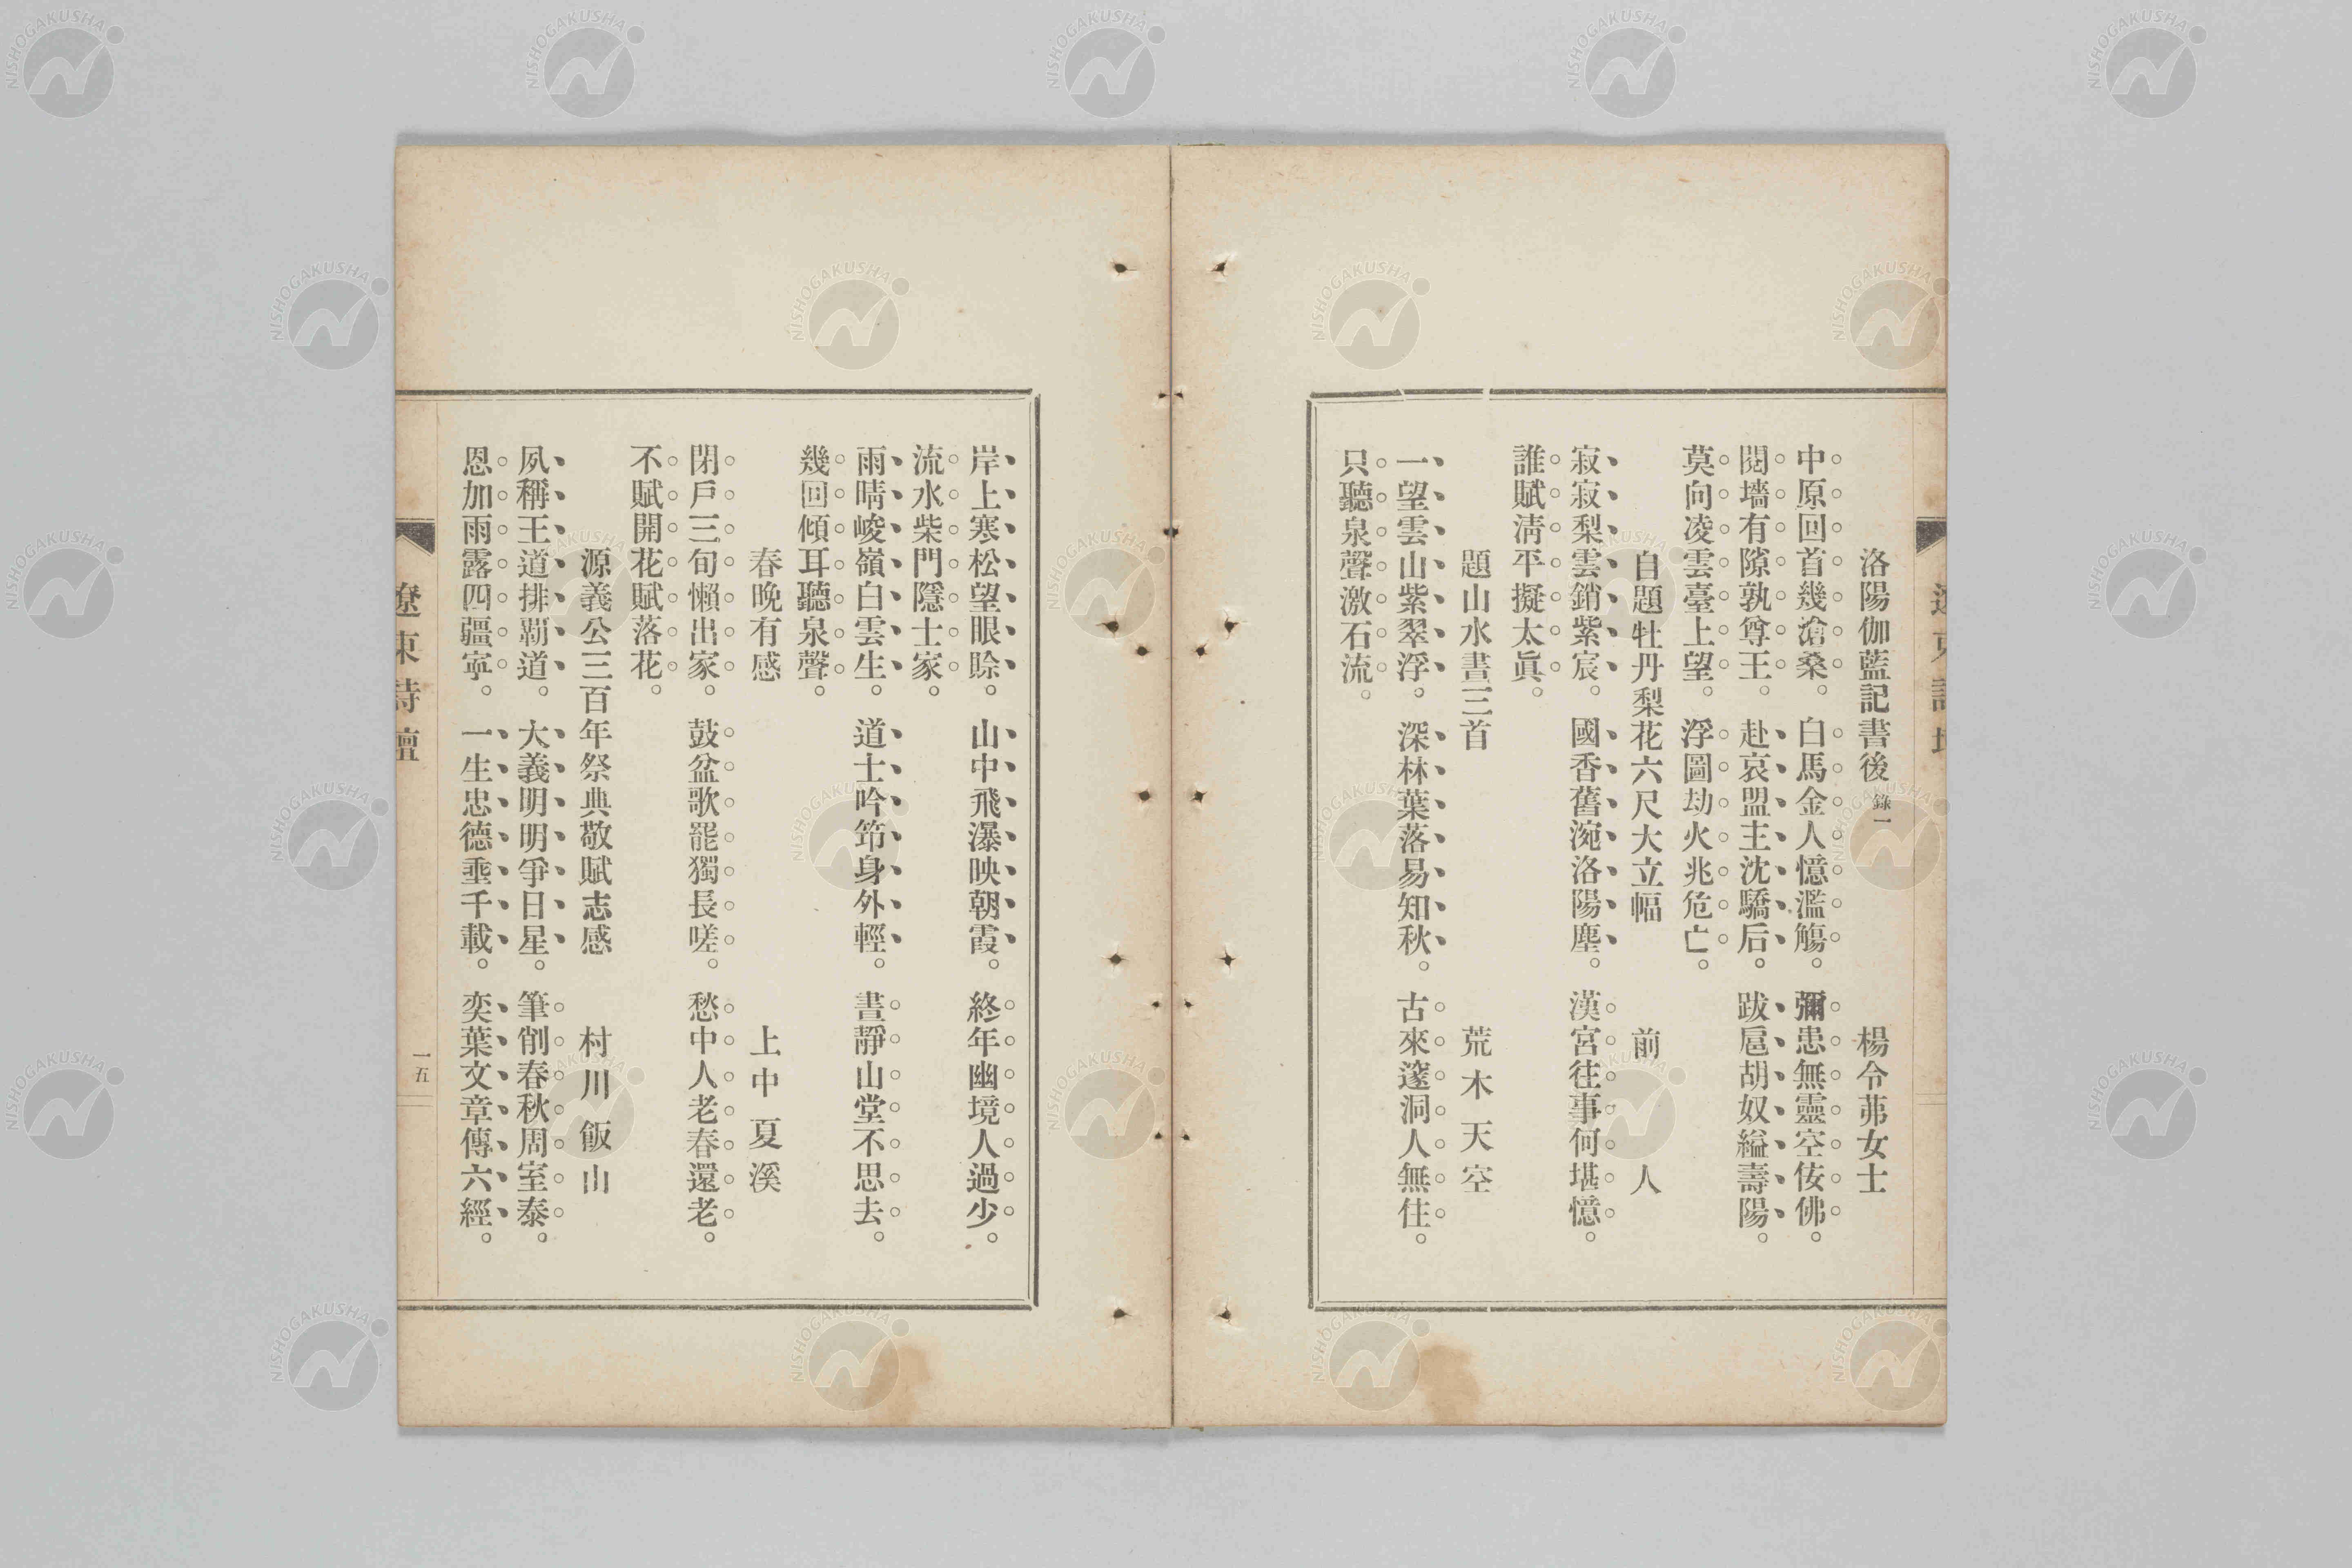 洛陽伽藍記書後 錄一 楊令茀女士
中原回首幾滄桑。白馬金人憶濫觴。彌患無靈空佞佛。
鬩墻有隙孰尊王。赴哀盟主沈驕后。跋扈胡奴縊壽陽。
莫向凌雲臺上望。浮圖劫火兆危亡。
自題牡丹梨花六尺大立幅 前人
寂寂梨雲銷紫宸。國香舊涴洛陽塵。漢宮往事何堪憶。
誰賦淸平擬太眞。
題山水畫三首 荒木天空
一望雲山紫翠浮。深林葉落易知秋。古來邃洞人無住。
只聽泉聲激石流。
岸上寒松望眼賒。山中飛瀑映朝霞。終年幽境人過少。
流水柴門隱士家。
雨晴峻嶺白雲生。道士吟笻身外輕。晝靜山堂不思去。
幾回傾耳聽泉聲。
春晚有感 上中夏溪
閉戶三旬懶出家。鼓盆歌罷獨長嗟。愁中人老春還老。
不賦開花賦落花。
源義公三百年祭典敬賦志感 村川飯山
夙稱王道排覇道。大義明明爭日星。筆削春秋周室泰。
恩加雨露四疆寧。一生忠德垂千載。奕葉文章傳六經。
遼東詩壇
一五
NISHOGAKUSHA